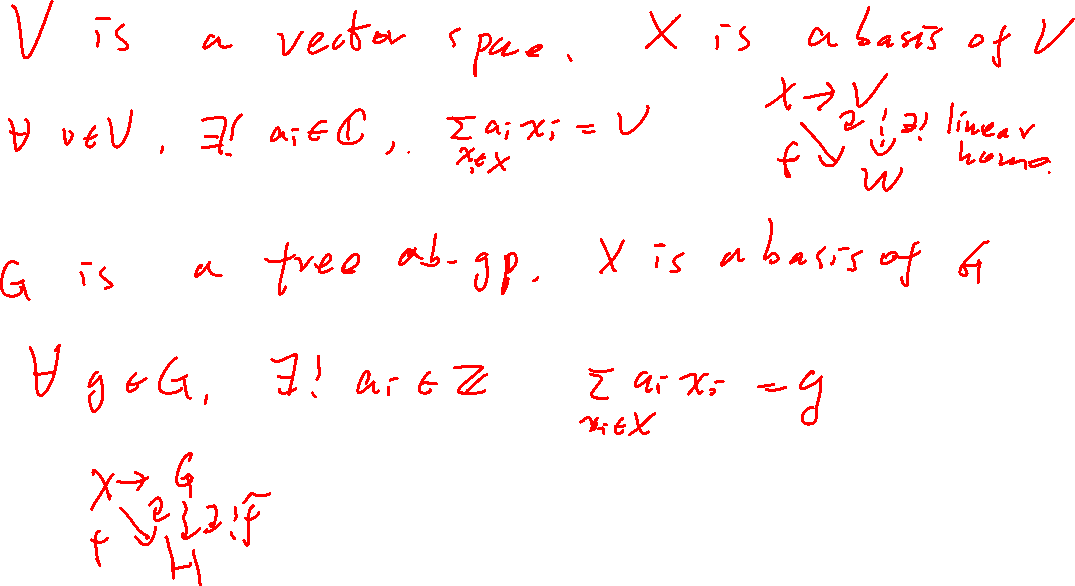 V is a vector space. X is a basis of V
∀ v∈V, ∃! aᵢ∈ℂ, ∑ aᵢ xᵢ = V
xᵢ∈X
X → V
∃! linear
f ↘ W homo.
G is a free ab-gp. X is a basis of G
∀ g∈G, ∃! aᵢ∈ℤ ∑ aᵢ xᵢ = g
xᵢ∈X
X → G
∃! f̃
f ↘ H